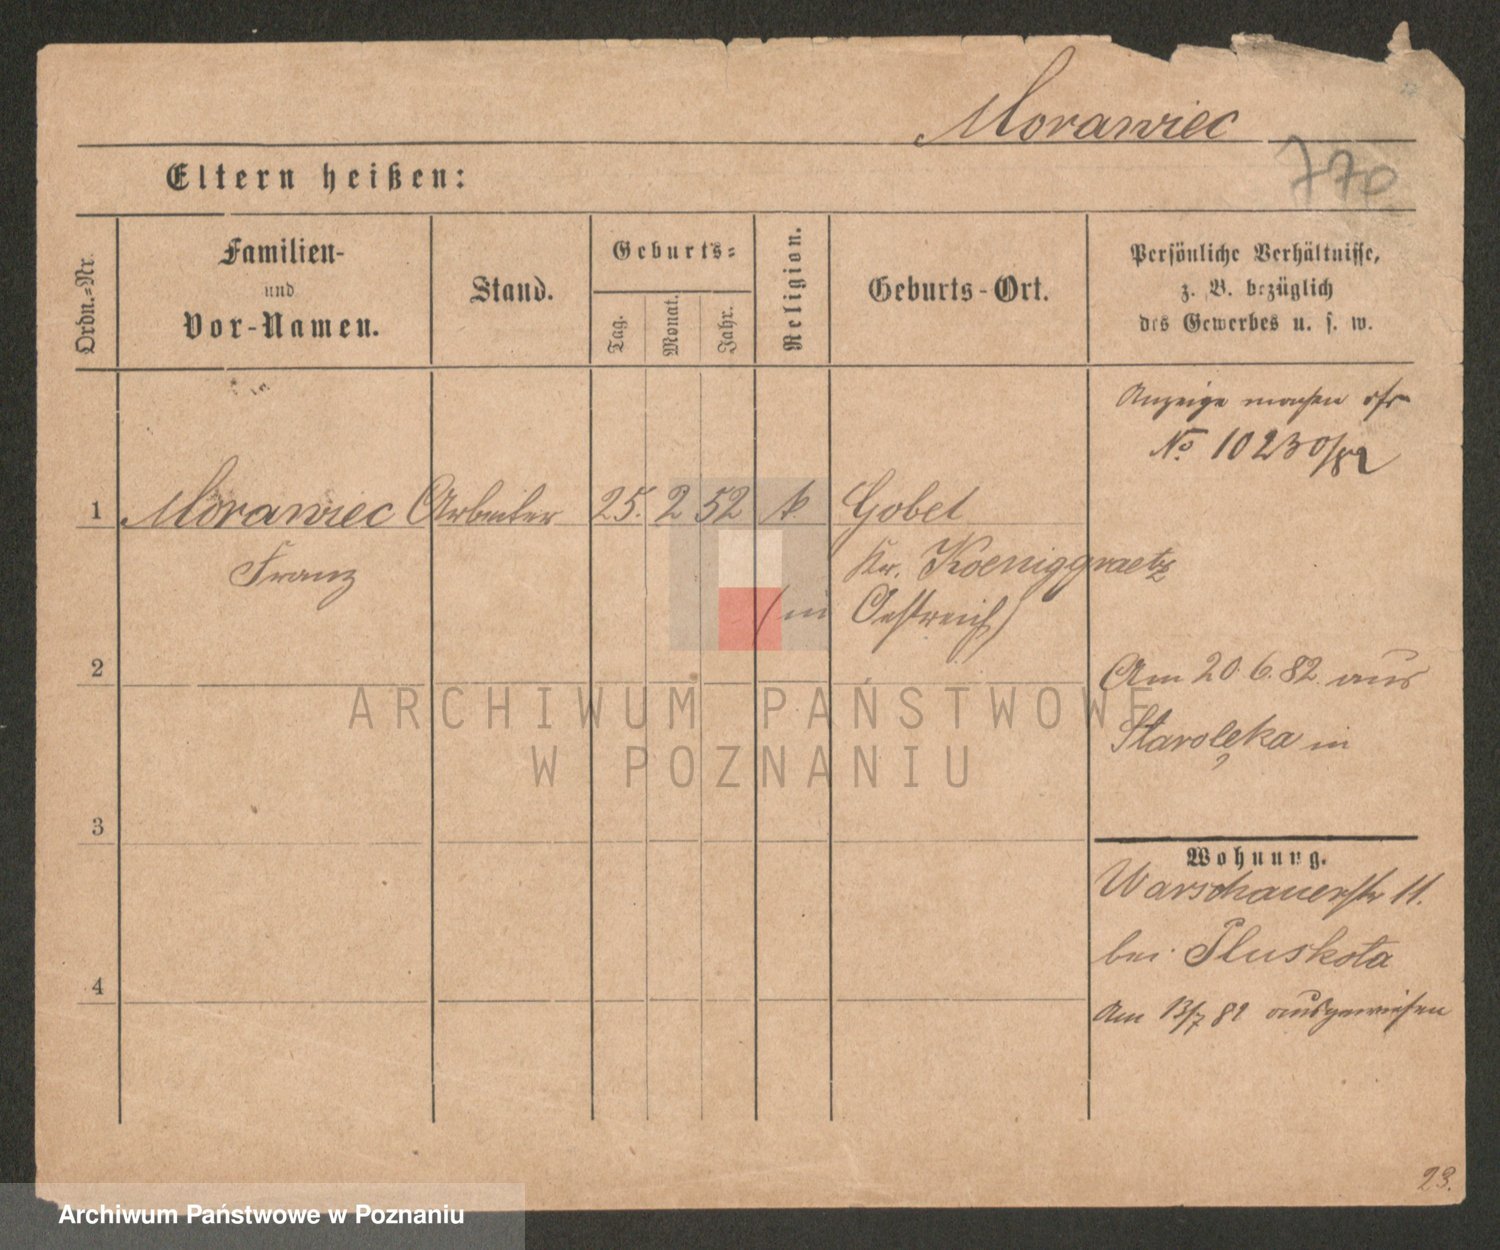 Morawiec
770
Eltern heißen:
Ordn.=Nr.
Familien-
und
Vor-Namen.
Stand.
Geburts=
Tag.
Monat.
Jahr.
Religion.
Geburts-Ort.
Persönliche Verhältnisse,
z. B. bezüglich
des Gewerbes u. s. w.
Anzeige machen
No 10230/82
1 Morawiec Arbeiter 25. 2 52 k. Gobel
Franz Kr. Koeniggraetz
(in Oestreich)
2
Am 20. 6. 82. aus
Starolęka in
3
Wohnung.
Warschauerstr 11.
bei Pluskota
4
Am 13/7 82 ausgewiesen
23.
ARCHIWUM PAŃSTWOWE
W POZNANIU
Archiwum Państwowe w Poznaniu